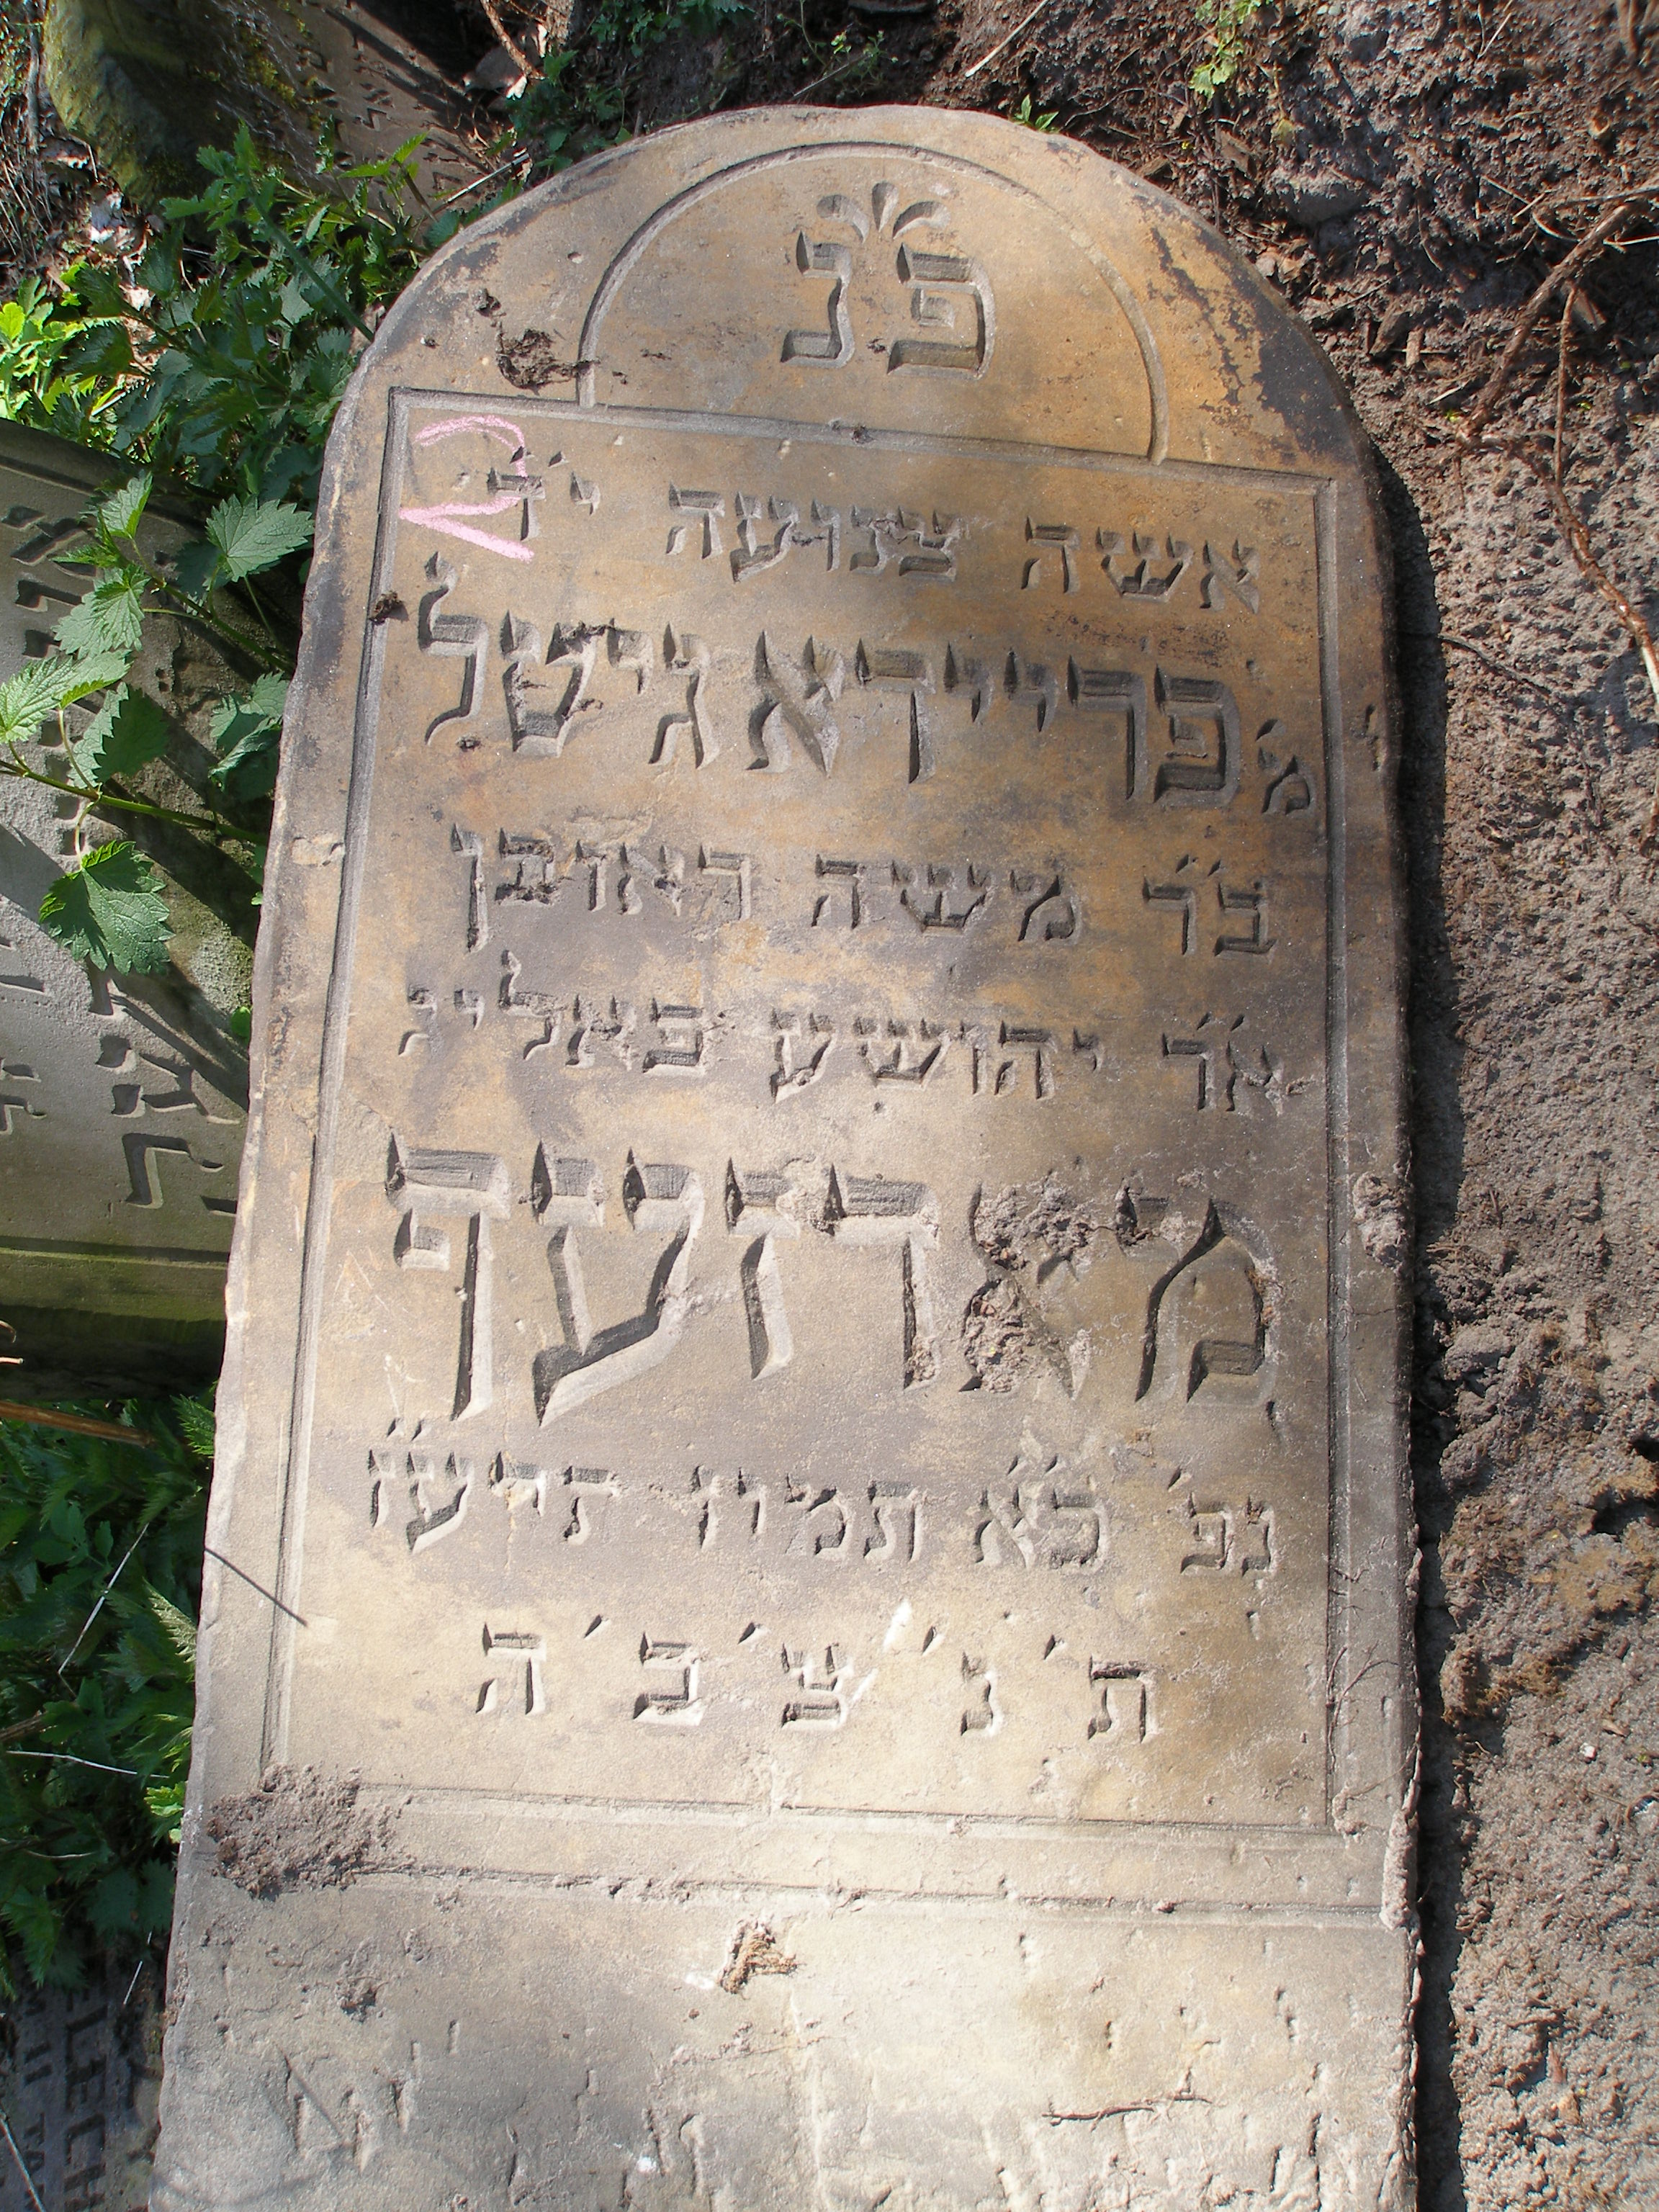 פ נ
אשה צנועה
מ' פריידא גיטל
ב"ר משה ראובן
א"ר יהושע פאליי
מארזעף
נפ' כ"א תמוז תרע"ו
ת'נ'צ'ב'ה